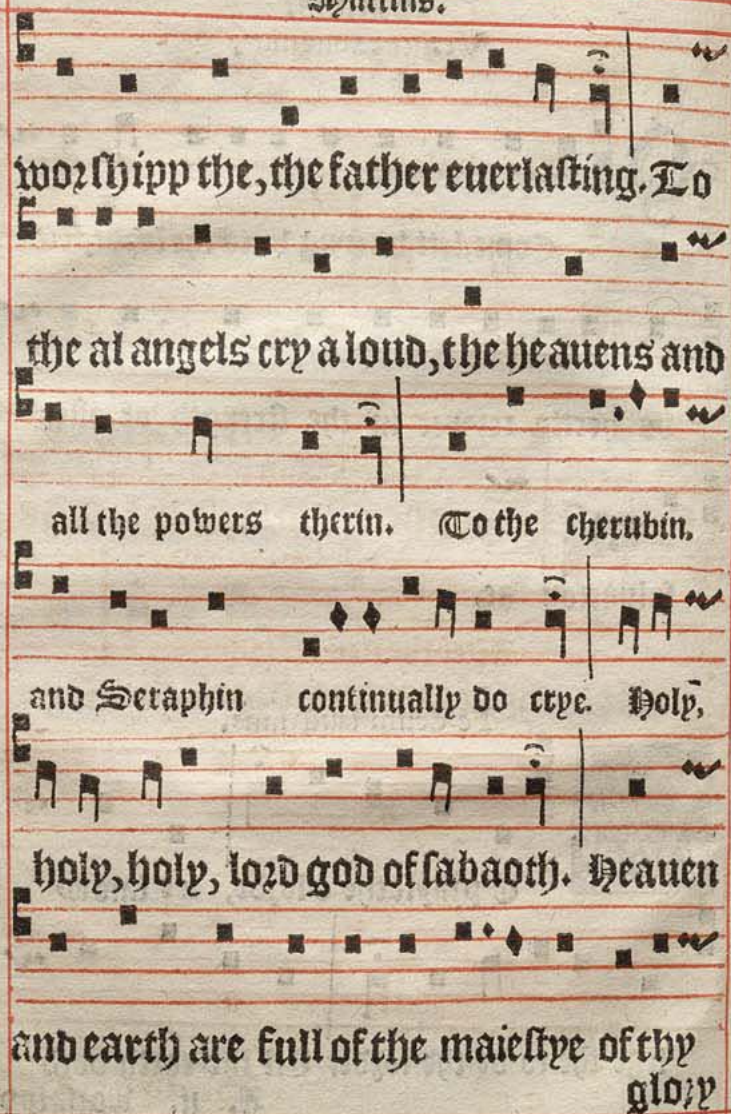 Mattins.
worſhipp the, the father euerlaſting. To
the al angels cry a loud, the heauens and
all the powers therin. To the cherubin,
and Seraphin continually do crye. Holy,
holy, holy, lord god of ſabaoth. Heauen
and earth are full of the maieſtye of thy
glory